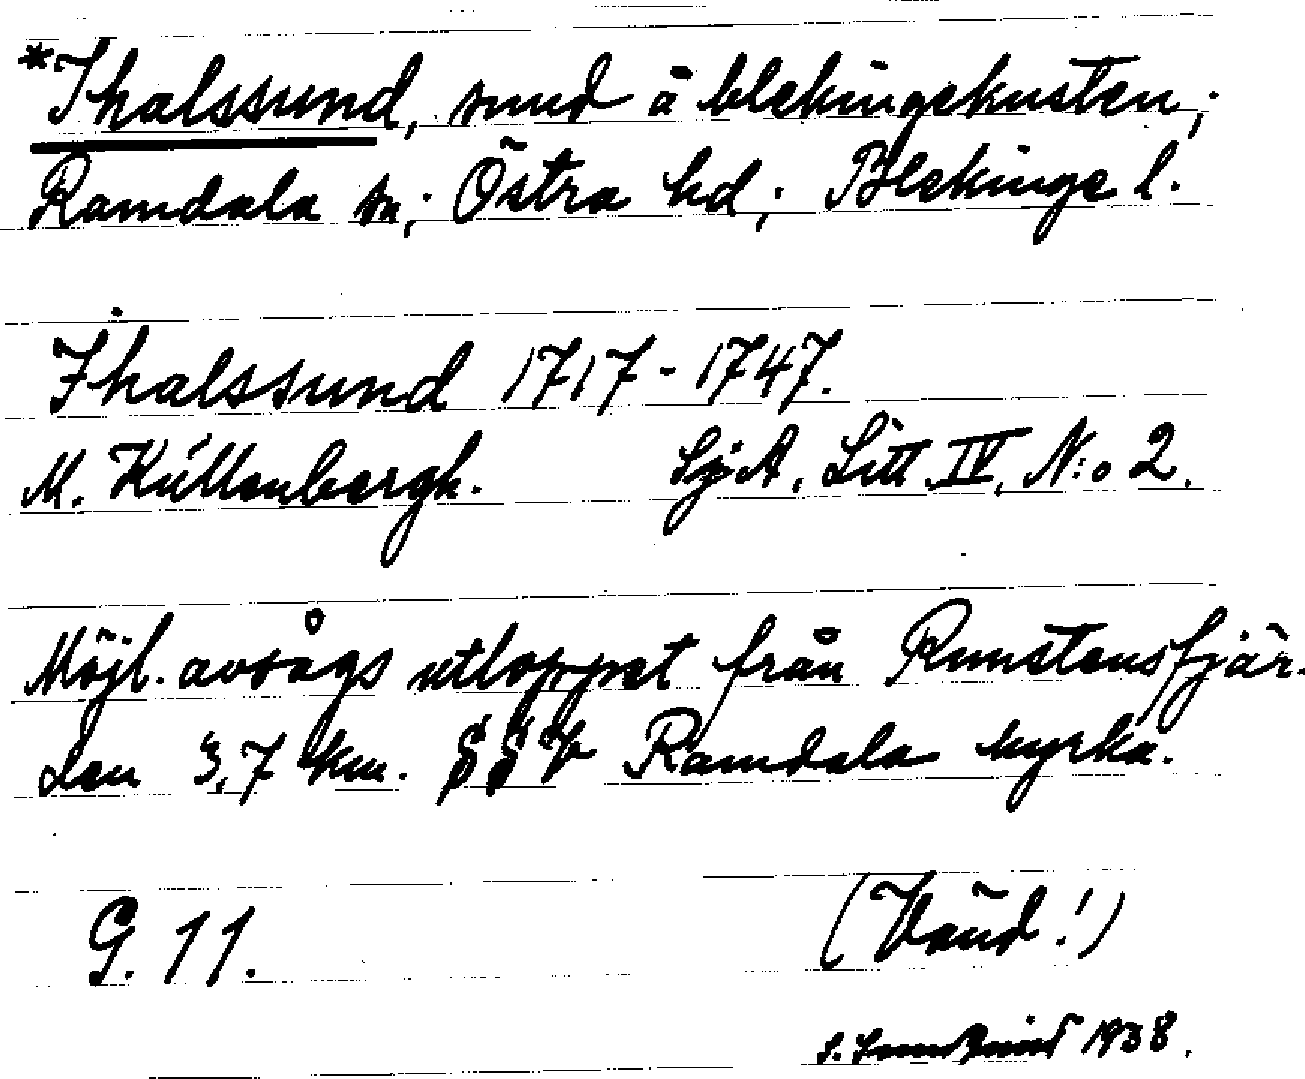 *Ihalssund, sund å blekingekusten;
Ramdala sn; Östra hd; Blekinge l.
Ihalssund 1717-1747.
M. Küllenbergh. SjA, Litt. IV, N:o 2.
Möjl. avsågs utloppet från Runstensfjär-
den 3,7 km. SSV Ramdala kyrka.
G. 11. (Vänd!)
S. 1938.